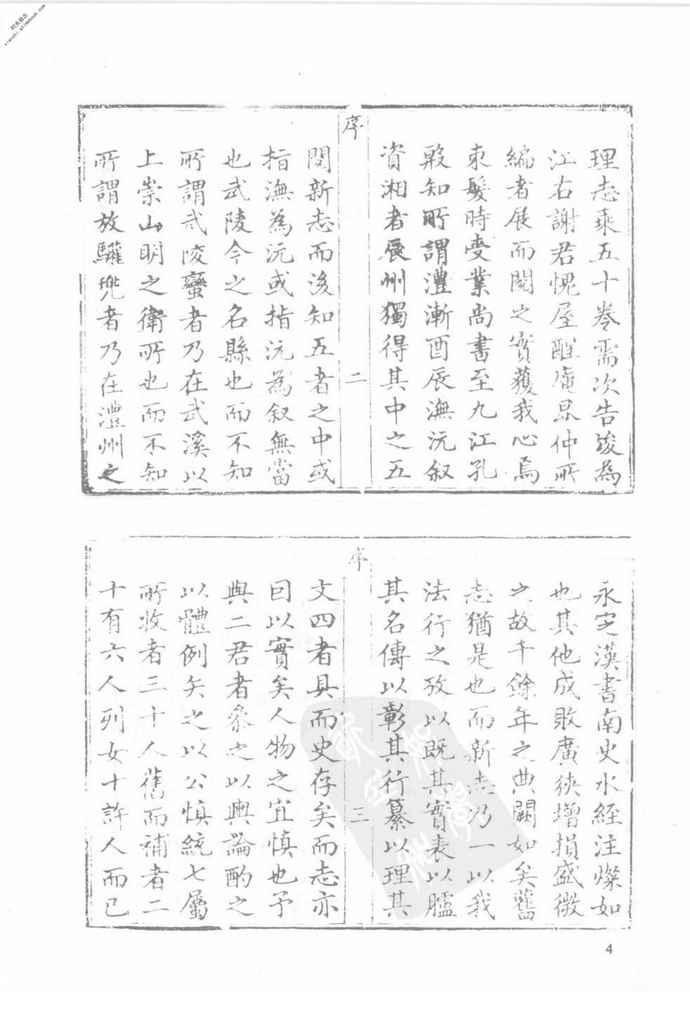 理志乘五十卷需次告竣為
江右謝君愧屋醒庵昆仲所
編者展而閱之實獲我心焉
束髮時受業尚書至九江孔
殷知所謂澧漸酉辰潕沅敘
資湘者辰州獨得其中之五
序
二
閱新志而後知五者之中或
指潕為沅或指沅為敘無當
也武陵今之名縣也而不知
所謂武陵蠻者乃在武溪以
上崇山明之衛所也而不知
所謂放驩兜者乃在澧州之
永定漢書南史水經注燦如
也其他成敗廣狹增損盛微
之故千餘年之典闕如矣舊
志猶是也而新志乃一以我
法行之攷以既其實表以臚
其名傳以彰其行纂以理其
序
三
文四者具而史存矣而志亦
曰以實矣人物之宜慎也予
與二君者參之以輿論酌之
以體例矢之以公慎統七屬
所收者三十人舊而補者二
十有六人列女十許人而已
4